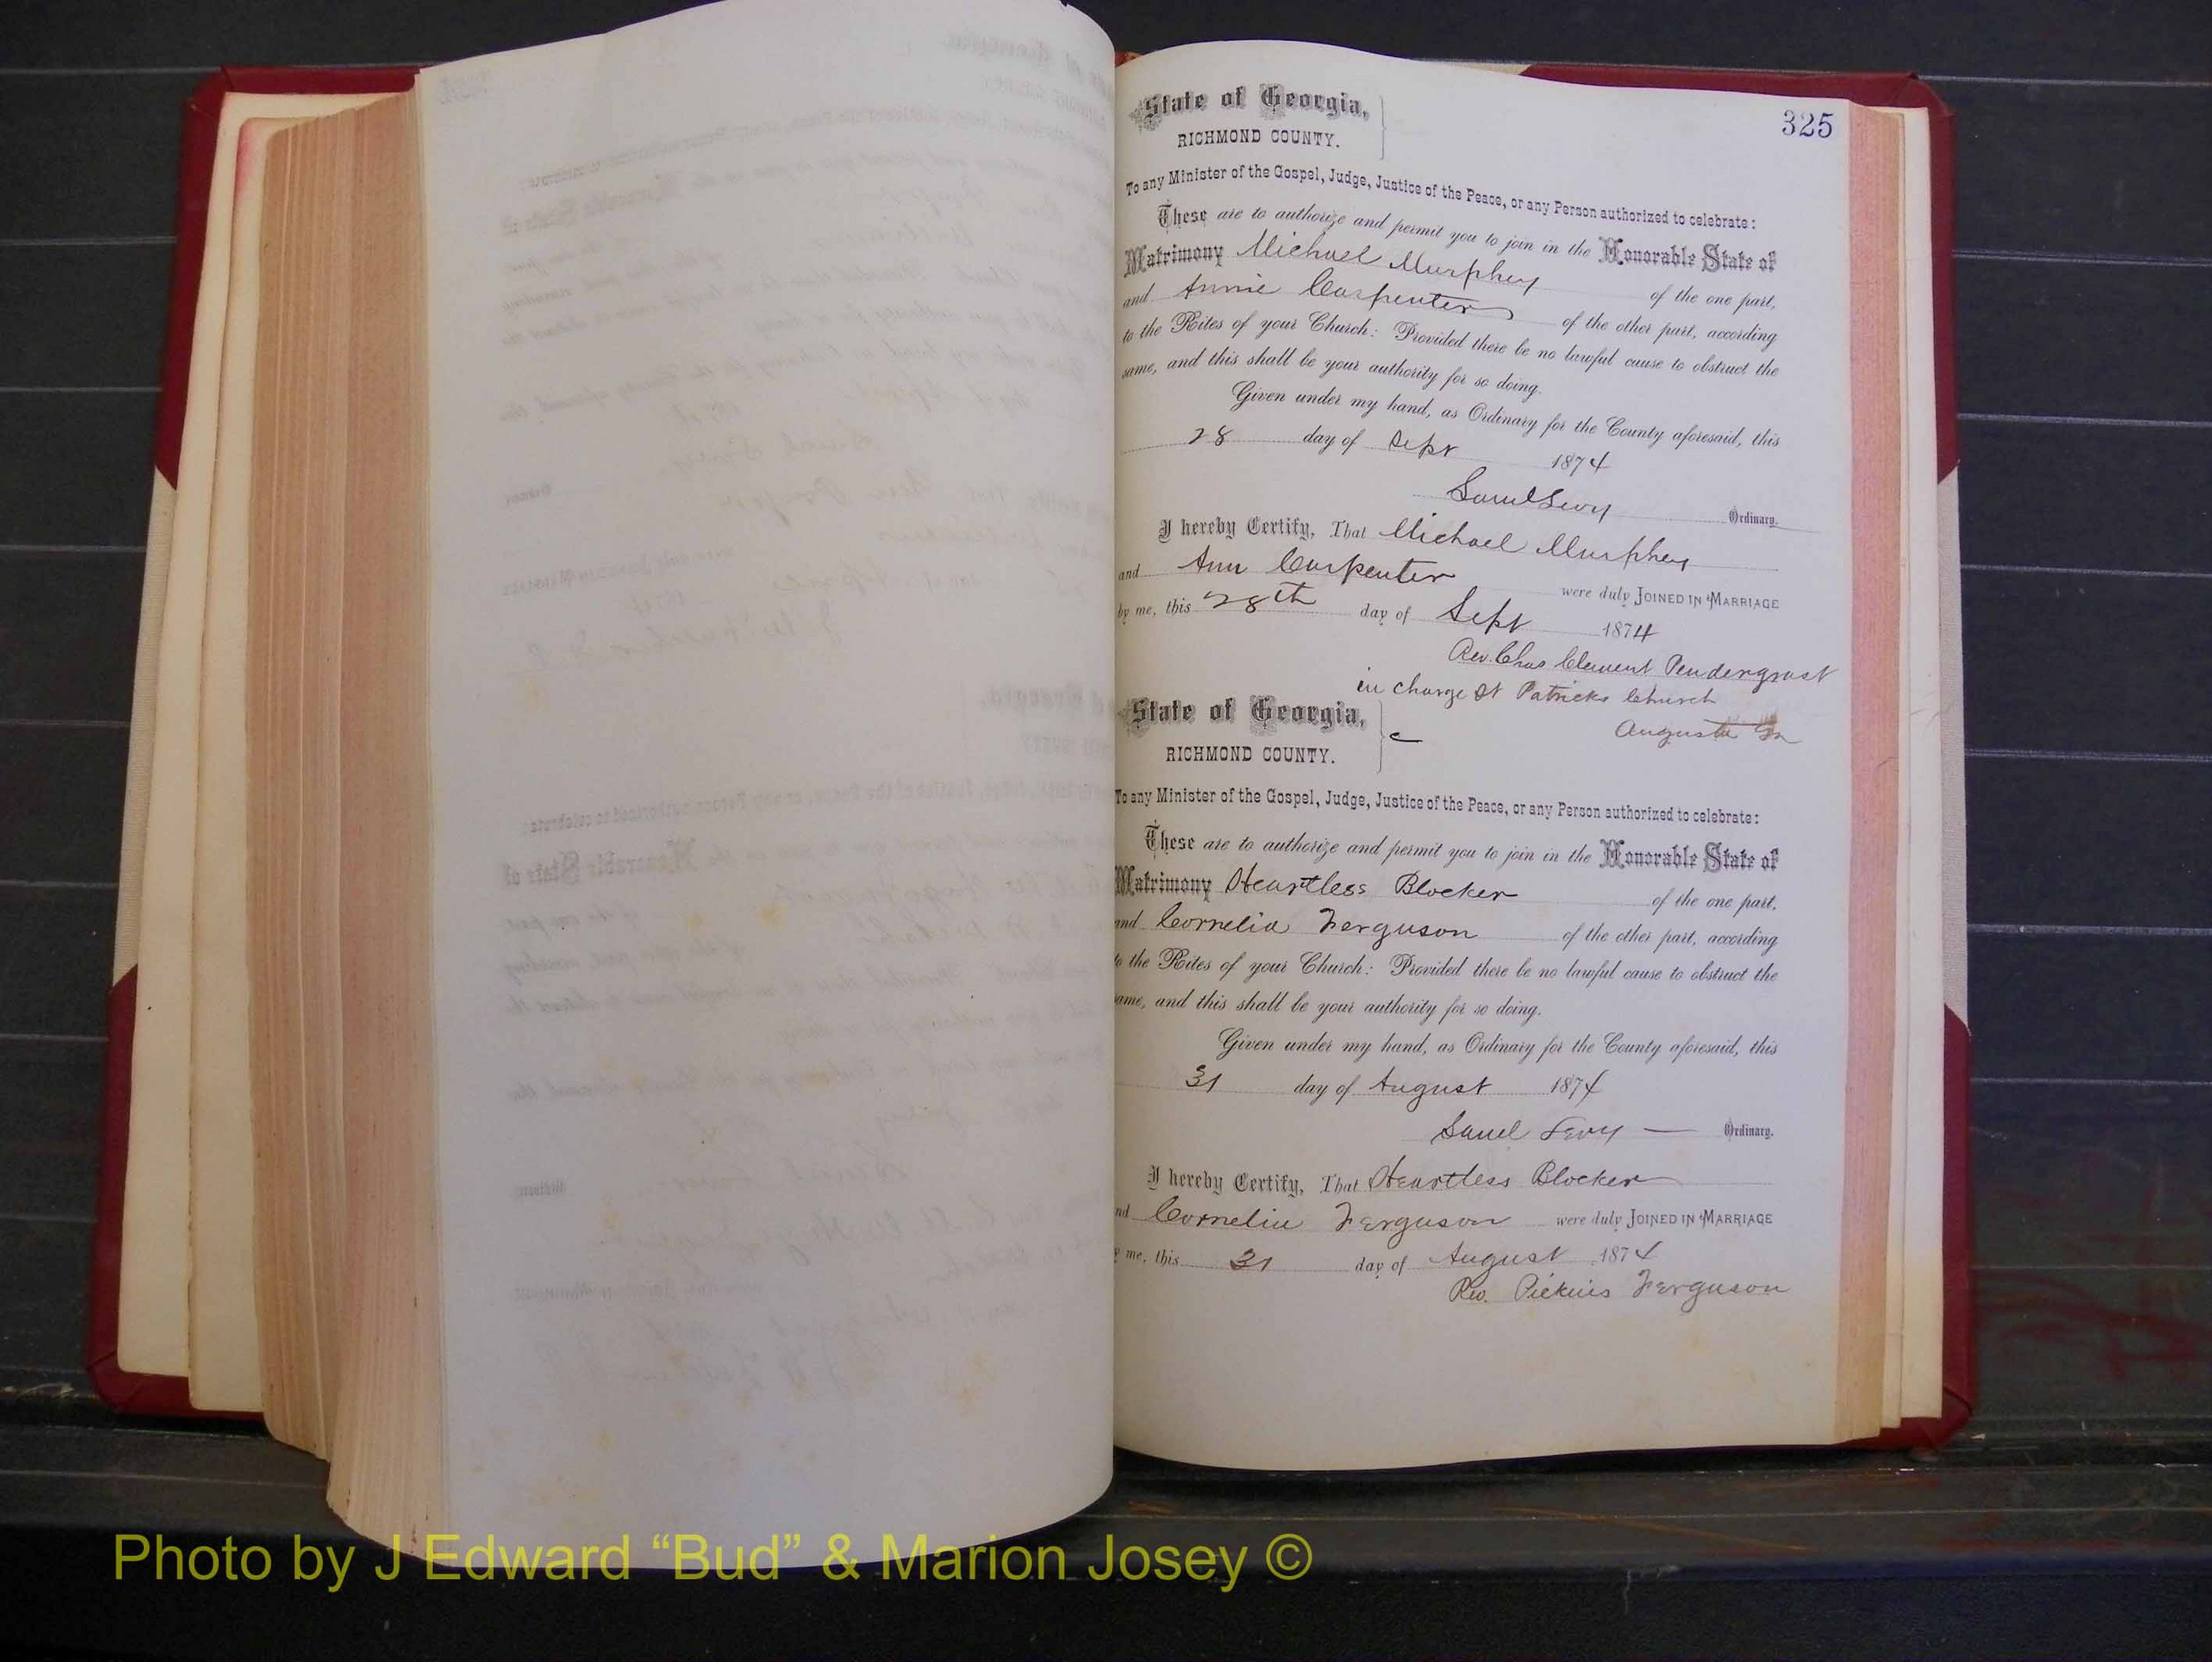 325
State of Georgia,
RICHMOND COUNTY.
To any Minister of the Gospel, Judge, Justice of the Peace, or any Person authorized to celebrate:
These are to authorize and permit you to join in the Honorable State of
Matrimony Michael Murphey of the one part,
and Annie Carpenter of the other part, according
to the Rites of your Church: Provided there be no lawful cause to obstruct the
same, and this shall be your authority for so doing.
Given under my hand, as Ordinary for the County aforesaid, this
28 day of Sept 1874
Saml Levy Ordinary.
I hereby Certify, That Michael Murphey
and Ann Carpenter were duly JOINED IN MARRIAGE
by me, this 28th day of Sept 1874
Rev. Chas Clement Pendergrast
in charge St Patricks Church
Augusta Ga
State of Georgia,
RICHMOND COUNTY.
To any Minister of the Gospel, Judge, Justice of the Peace, or any Person authorized to celebrate:
These are to authorize and permit you to join in the Honorable State of
Matrimony Heartless Blocker of the one part,
and Cornelia Ferguson of the other part, according
to the Rites of your Church: Provided there be no lawful cause to obstruct the
same, and this shall be your authority for so doing.
Given under my hand, as Ordinary for the County aforesaid, this
31 day of August 1874
Samel Levy — Ordinary.
I hereby Certify, That Heartless Blocker
and Cornelia Ferguson were duly JOINED IN MARRIAGE
by me, this 31 day of August 1874
Rev. Pickins Ferguson
Photo by J Edward “Bud” & Marion Josey ©